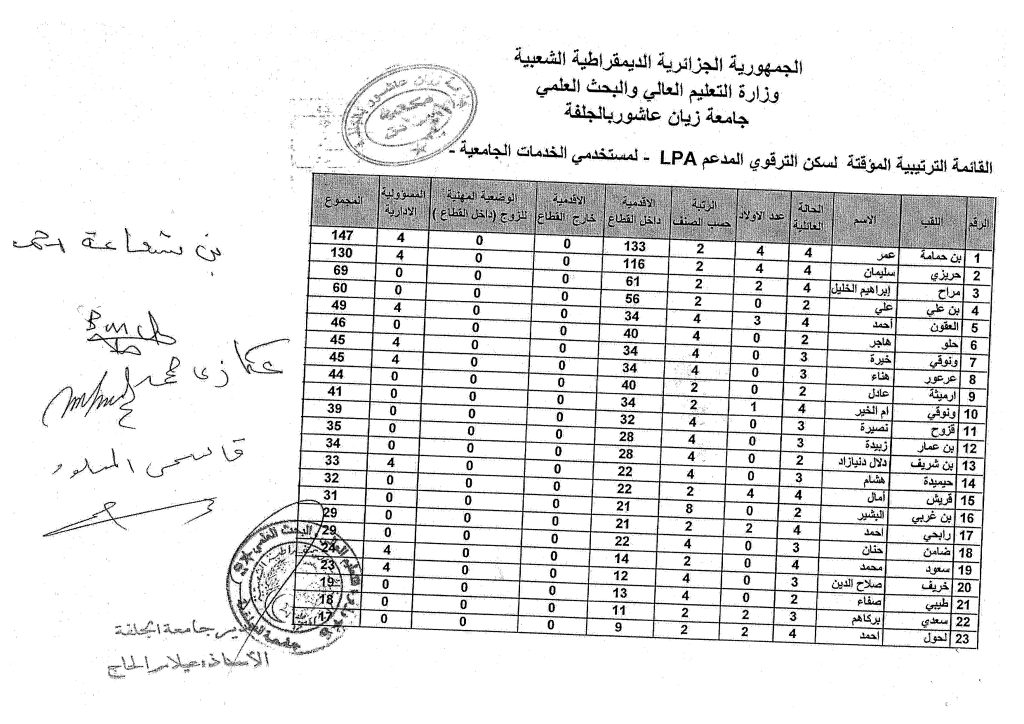 الجمهورية الجزائرية الديمقراطية الشعبية
وزارة التعليم العالي والبحث العلمي
جامعة زيان عاشوربالجلفة
القائمة الترتيبية المؤقتة لسكن الترقوي المدعم LPA - لمستخدمي الخدمات الجامعية -
الرقم اللقب الاسم الحالة العائلية عدد الاولاد الرتبة حسب الصنف الاقدمية داخل القطاع الاقدمية خارج القطاع الوضعية المهنية للزوج (داخل القطاع) المسؤولية الادارية المجموع
1 بن حمامة عمر 4 4 2 133 0 0 4 147
2 حريزي سليمان 4 4 2 116 0 0 4 130
3 مراح إبراهيم الخليل 4 2 2 61 0 0 0 69
4 بن علي علي 2 0 2 56 0 0 0 60
5 العقون أحمد 4 3 4 34 0 0 4 49
6 حلو هاجر 2 0 4 40 0 0 0 46
7 ونوقي خيرة 3 0 4 34 0 0 4 45
8 عرعور هناء 3 0 4 34 0 0 4 45
9 ارميثة عادل 2 0 2 40 0 0 0 44
10 ونوقي ام الخير 4 1 2 34 0 0 0 41
11 قزوح نصيرة 3 0 4 32 0 0 0 39
12 بن عمار زبيدة 3 0 4 28 0 0 0 35
13 بن شريف دلال دنيازاد 2 0 4 28 0 0 0 34
14 حيميدة هشام 3 0 4 22 0 0 4 33
15 قريش أمال 4 4 2 22 0 0 0 32
16 بن غربي البشير 2 0 8 21 0 0 0 31
17 رابحي احمد 4 2 2 21 0 0 0 29
18 ضامن حنان 3 0 4 22 0 0 0 29
19 سعود محمد 4 0 2 14 0 0 4 24
20 خريف صلاح الدين 3 0 4 12 0 0 4 23
21 طيبي صفاء 2 0 4 13 0 0 0 19
22 سعدي بركاهم 3 2 2 11 0 0 0 18
23 لحول احمد 4 2 2 9 0 0 0 17
بن شعاعة احمد
عكازي محمد
قاسمي الميلود
مدير جامعة الجلفة
الأستاذ: عيلام الحاج